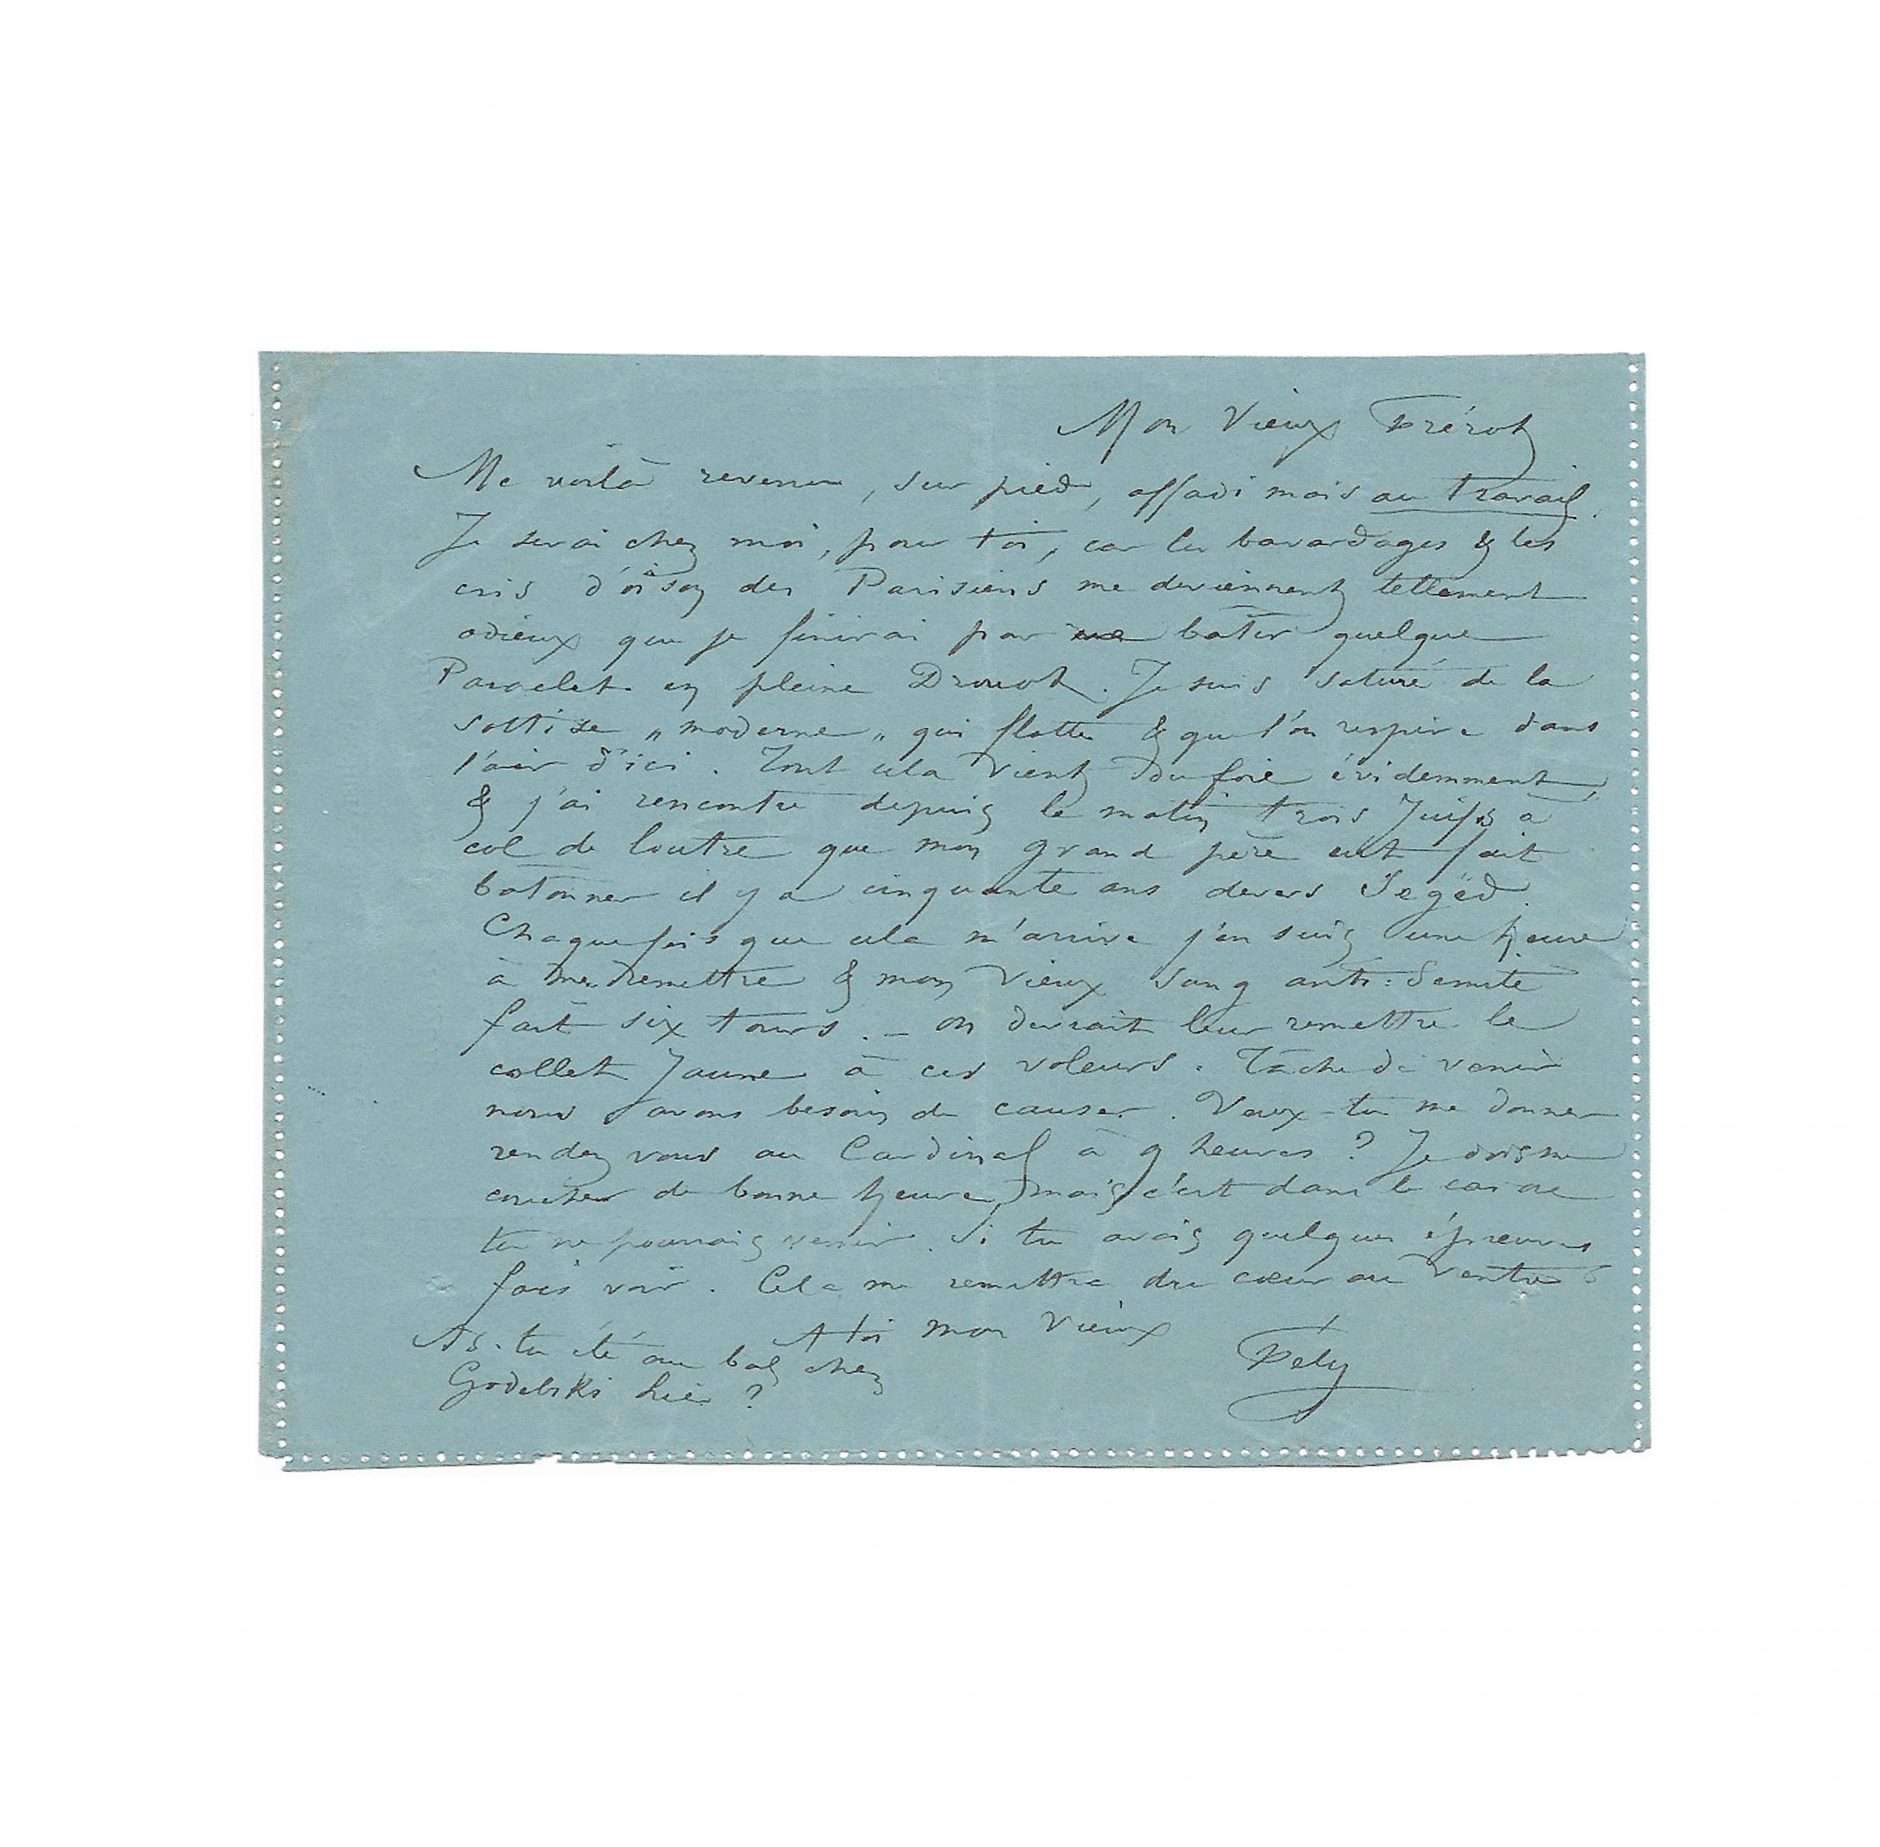 Mon Vieux Frérot
Me voilà revenu, sur pied, affadi mais au travail.
Je serai chez moi, pour toi, car les bavardages & les
cris d'oison des Parisiens me deviennent tellement
odieux que je finirai par me batir quelque
Paraclet en pleine Drouot. Je suis saturé de la
sottise „moderne„ qui flotte & que l'on respire dans
l'air d'ici. Tout cela vient du foie évidemment,
& j'ai rencontré depuis le matin trois Juifs à
col de loutre que mon grand père eut fait
batonner il y a cinquante ans devers Segëd.
Chaque fois que cela m'arrive j'en suis une heure
à me remettre & mon vieux sang anti-Semite
fait six tours. – on devrait leur remettre le
collet Jaune à ces voleurs. Tâche de venir
nous avons besoin de causer. Veux-tu me donner
rendez vous au Cardinal à 9 heures ? Je dois me
coucher de bonne heure, mais c'est dans le cas où
tu ne pourrais venir. Si tu avais quelques épreuves
fais voir. Cela me remettra du cœur au ventre
A toi mon vieux
Fély
As-tu été au bal chez
Godebski hier ?